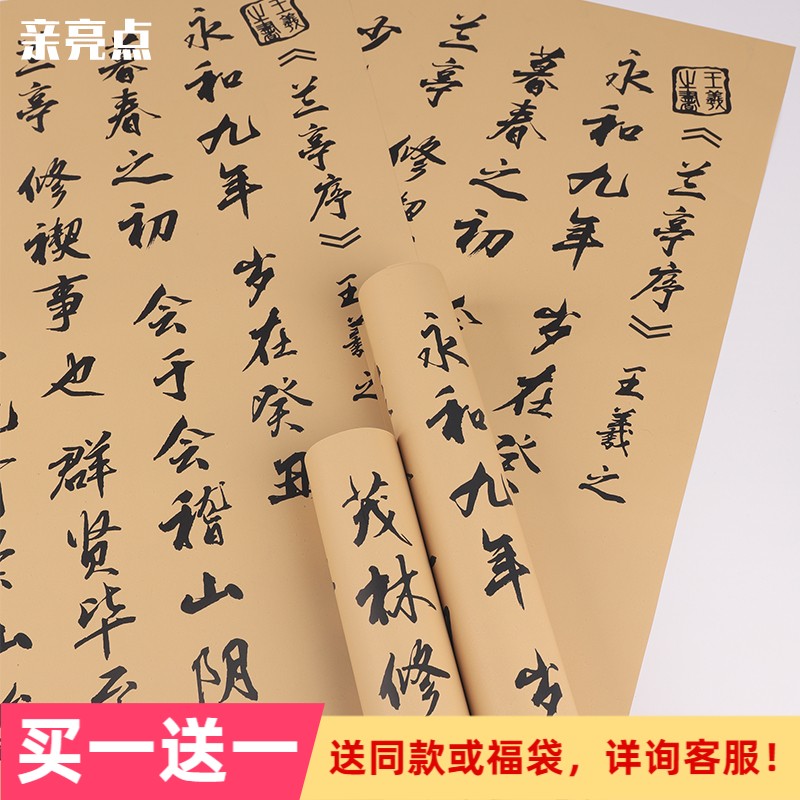 亲亮点
王羲之書
《兰亭序》 王羲之
永和九年 岁在
暮春之初
兰亭 修
王羲之書
《兰亭序》 王羲之
永和九年 岁在癸丑
暮春之初 会于会稽山阴
兰亭 修禊事也 群贤毕至
永和九年 岁
茂林修
买一送一
送同款或福袋，详询客服！